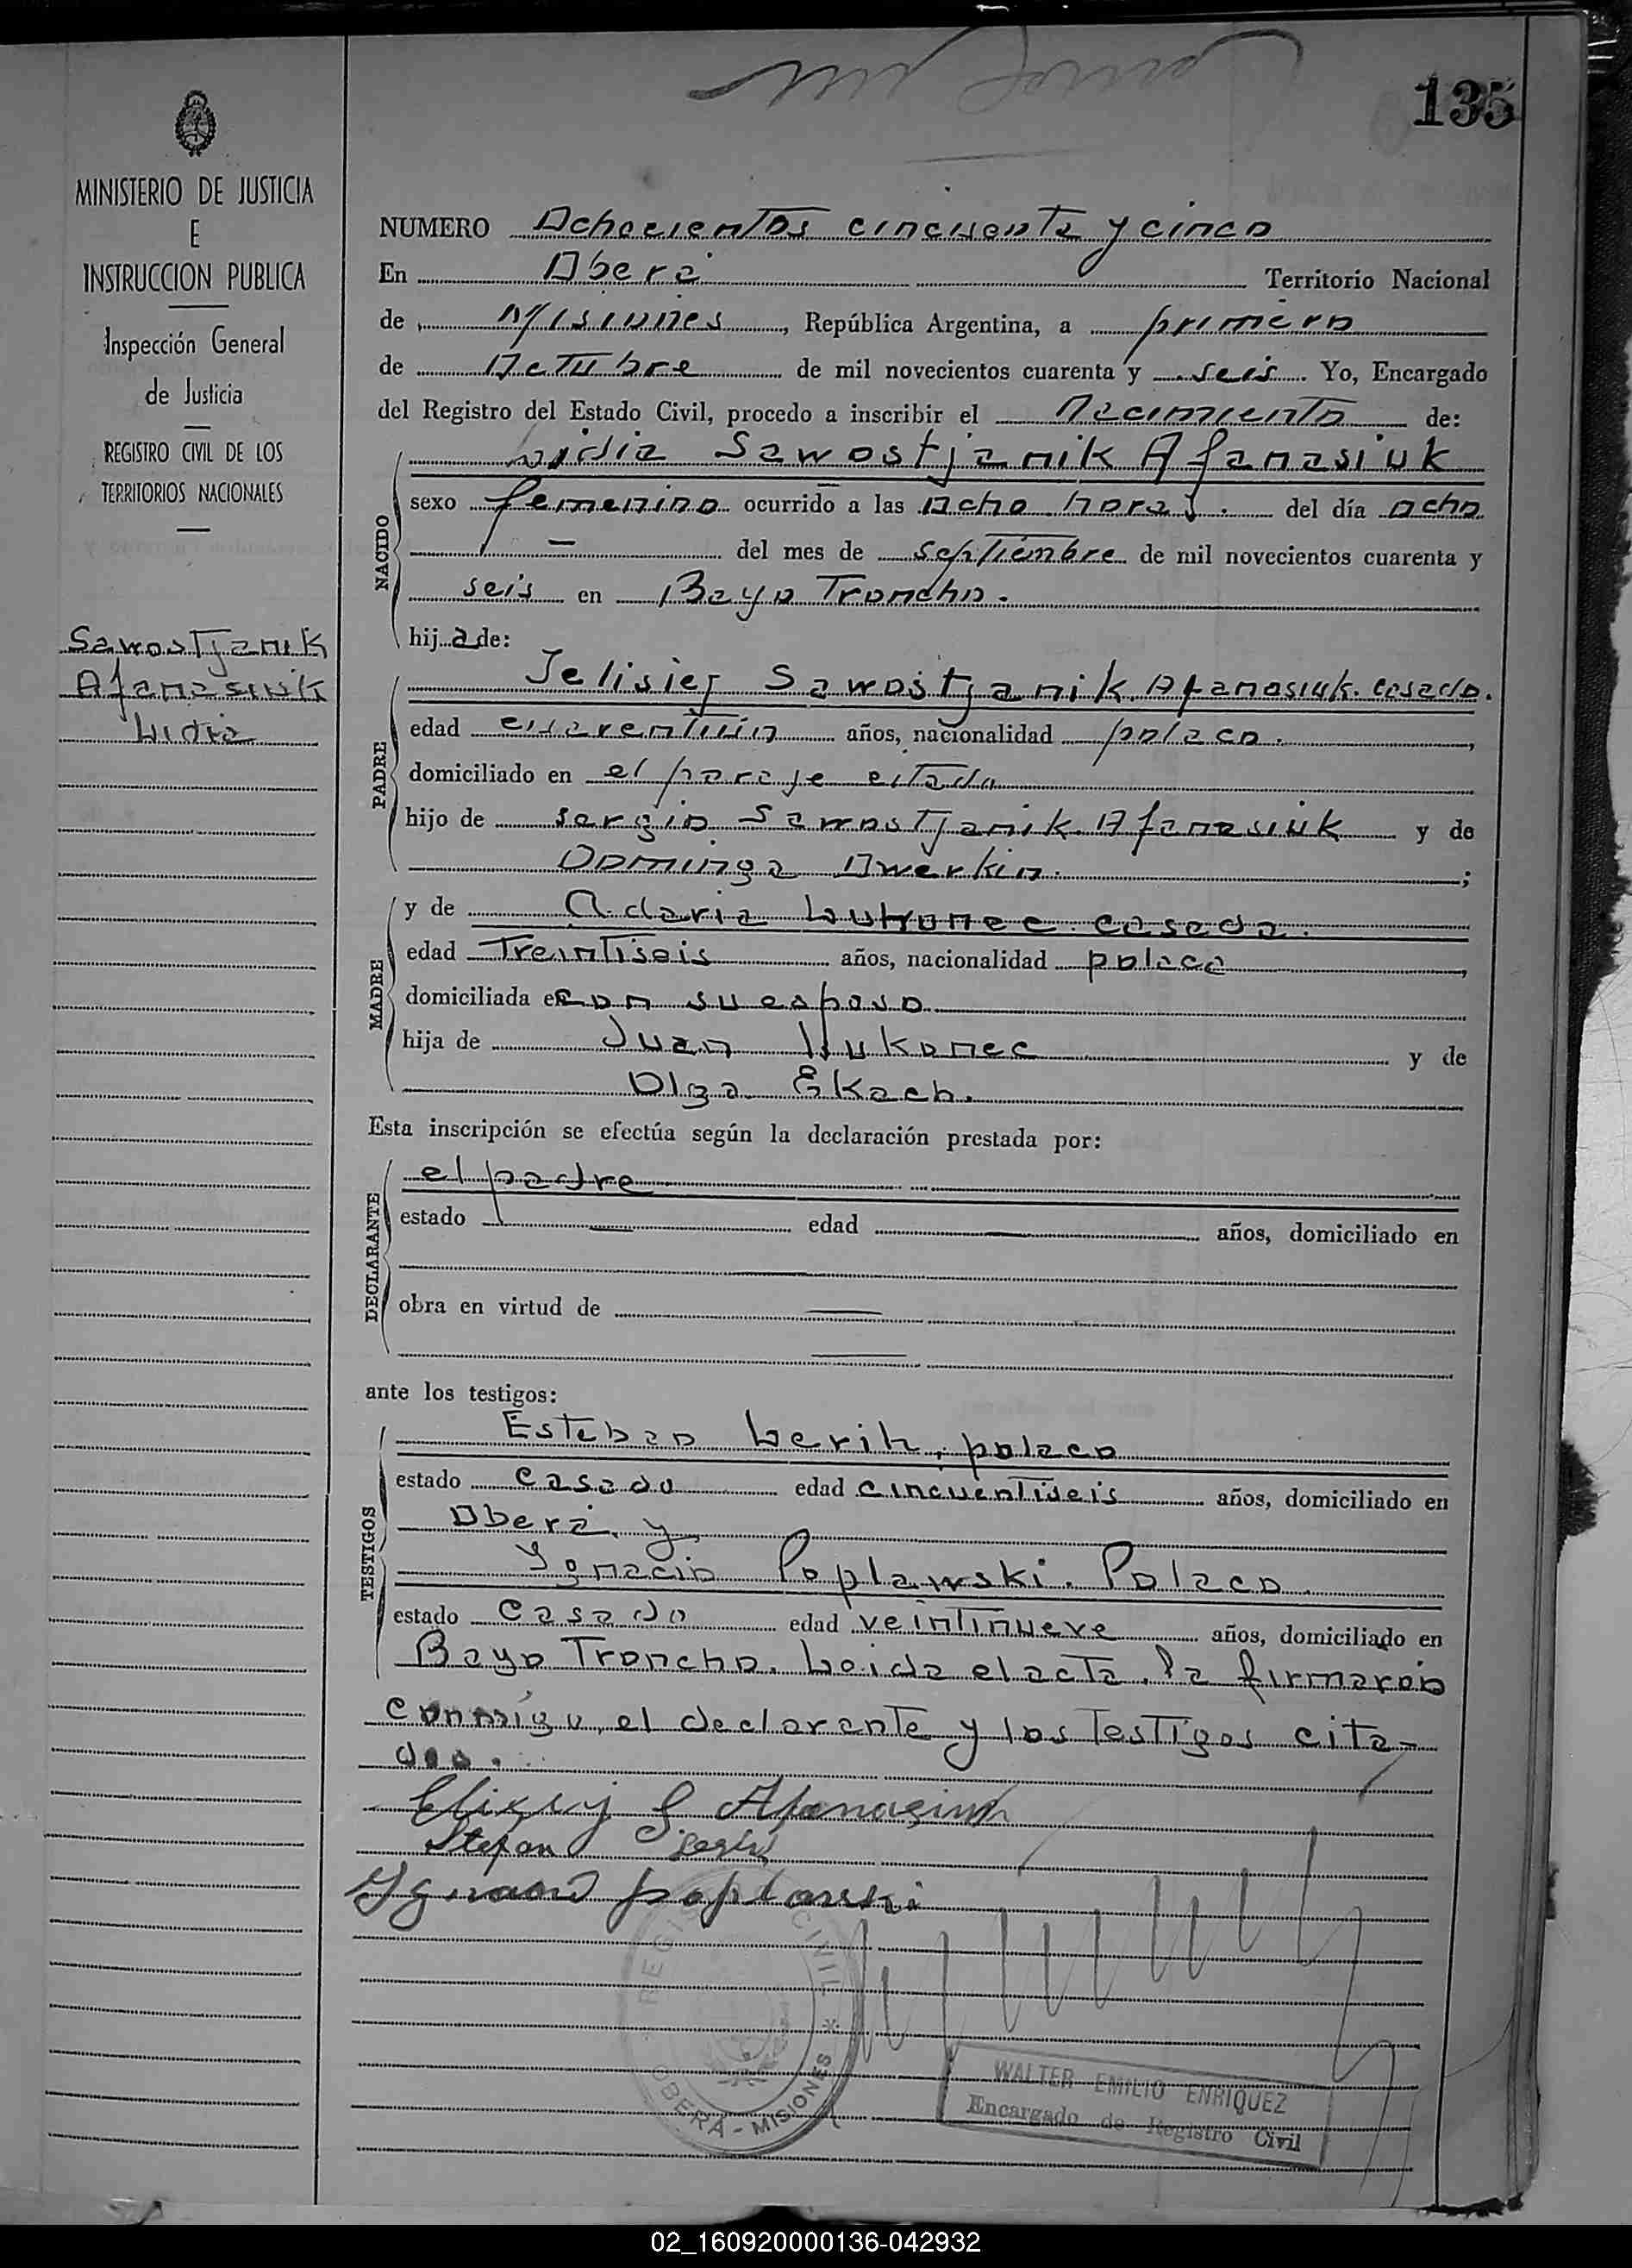 135
MINISTERIO DE JUSTICIA
E
INSTRUCCION PUBLICA
Inspección General
de Justicia
REGISTRO CIVIL DE LOS
TERRITORIOS NACIONALES
Sawostjanik
Afanasiuk
Lidia
NUMERO Ochocientos cincuenta y cinco
En Oberá Territorio Nacional
de Misiones, República Argentina, a primero
de Octubre de mil novecientos cuarenta y seis. Yo, Encargado
del Registro del Estado Civil, procedo a inscribir el Nacimiento de:
NACIDO
Lidia Sawostjanik Afanasiuk
sexo femenino ocurrido a las ocho horas. del día ocho
— del mes de septiembre de mil novecientos cuarenta y
seis en Bayo Troncho.
hija de:
PADRE
Jelisiej Sawostjanik Afanasiuk. casado.
edad cuarentiún años, nacionalidad polaco.,
domiciliado en el paraje citado
hijo de Sergio Sawostjanik Afanasiuk y de
Dominga Owerkin.;
MADRE
y de Adaria Lukonec casada.
edad Treintiseis años, nacionalidad polaca,
domiciliada en con su esposo
hija de Juan Lukonec y de
Olga Ekach.
Esta inscripción se efectúa según la declaración prestada por:
DECLARANTE
el padre
estado — edad — años, domiciliado en
—
obra en virtud de —
—
ante los testigos:
TESTIGOS
Esteban Lerih, polaco
estado casado edad cincuentiseis años, domiciliado en
Oberá y
Ygnacio Poplawski. Polaco
estado casado edad veintinueve años, domiciliado en
Bayo Troncho. Leida el acta, la firmaron
conmigo, el declarante y los testigos cita-
dos.
S. Afanasiuk
Stefan
Ygnacio Poplawski
REGISTRO CIVIL
OBERÁ - MISIONES
WALTER EMILIO ENRIQUEZ
Encargado de Registro Civil
02_160920000136-042932